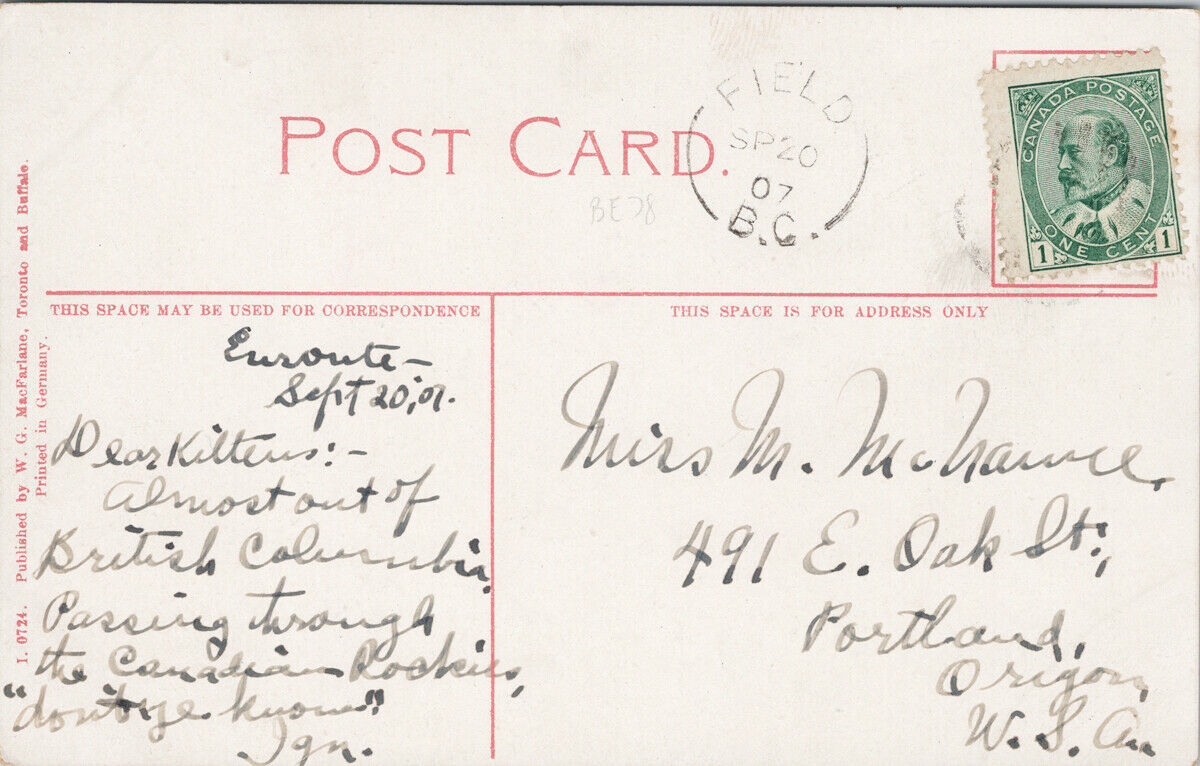 POST CARD.
FIELD
SP 20
07
B.C.
BE78
CANADA POSTAGE
ONE CENT
1 1
I. 0724. Published by W. G. MacFarlane, Toronto and Buffalo.
Printed in Germany.
THIS SPACE MAY BE USED FOR CORRESPONDENCE
Enroute—
Sept 20, '07.
Dear Kittens:—
Almost out of
British Columbia,
Passing through
the Canadian Rockies,
"don't ye know".
Ign.
THIS SPACE IS FOR ADDRESS ONLY
Miss M. McNamee,
491 E. Oak St.,
Portland,
Origon,
U.S. Am